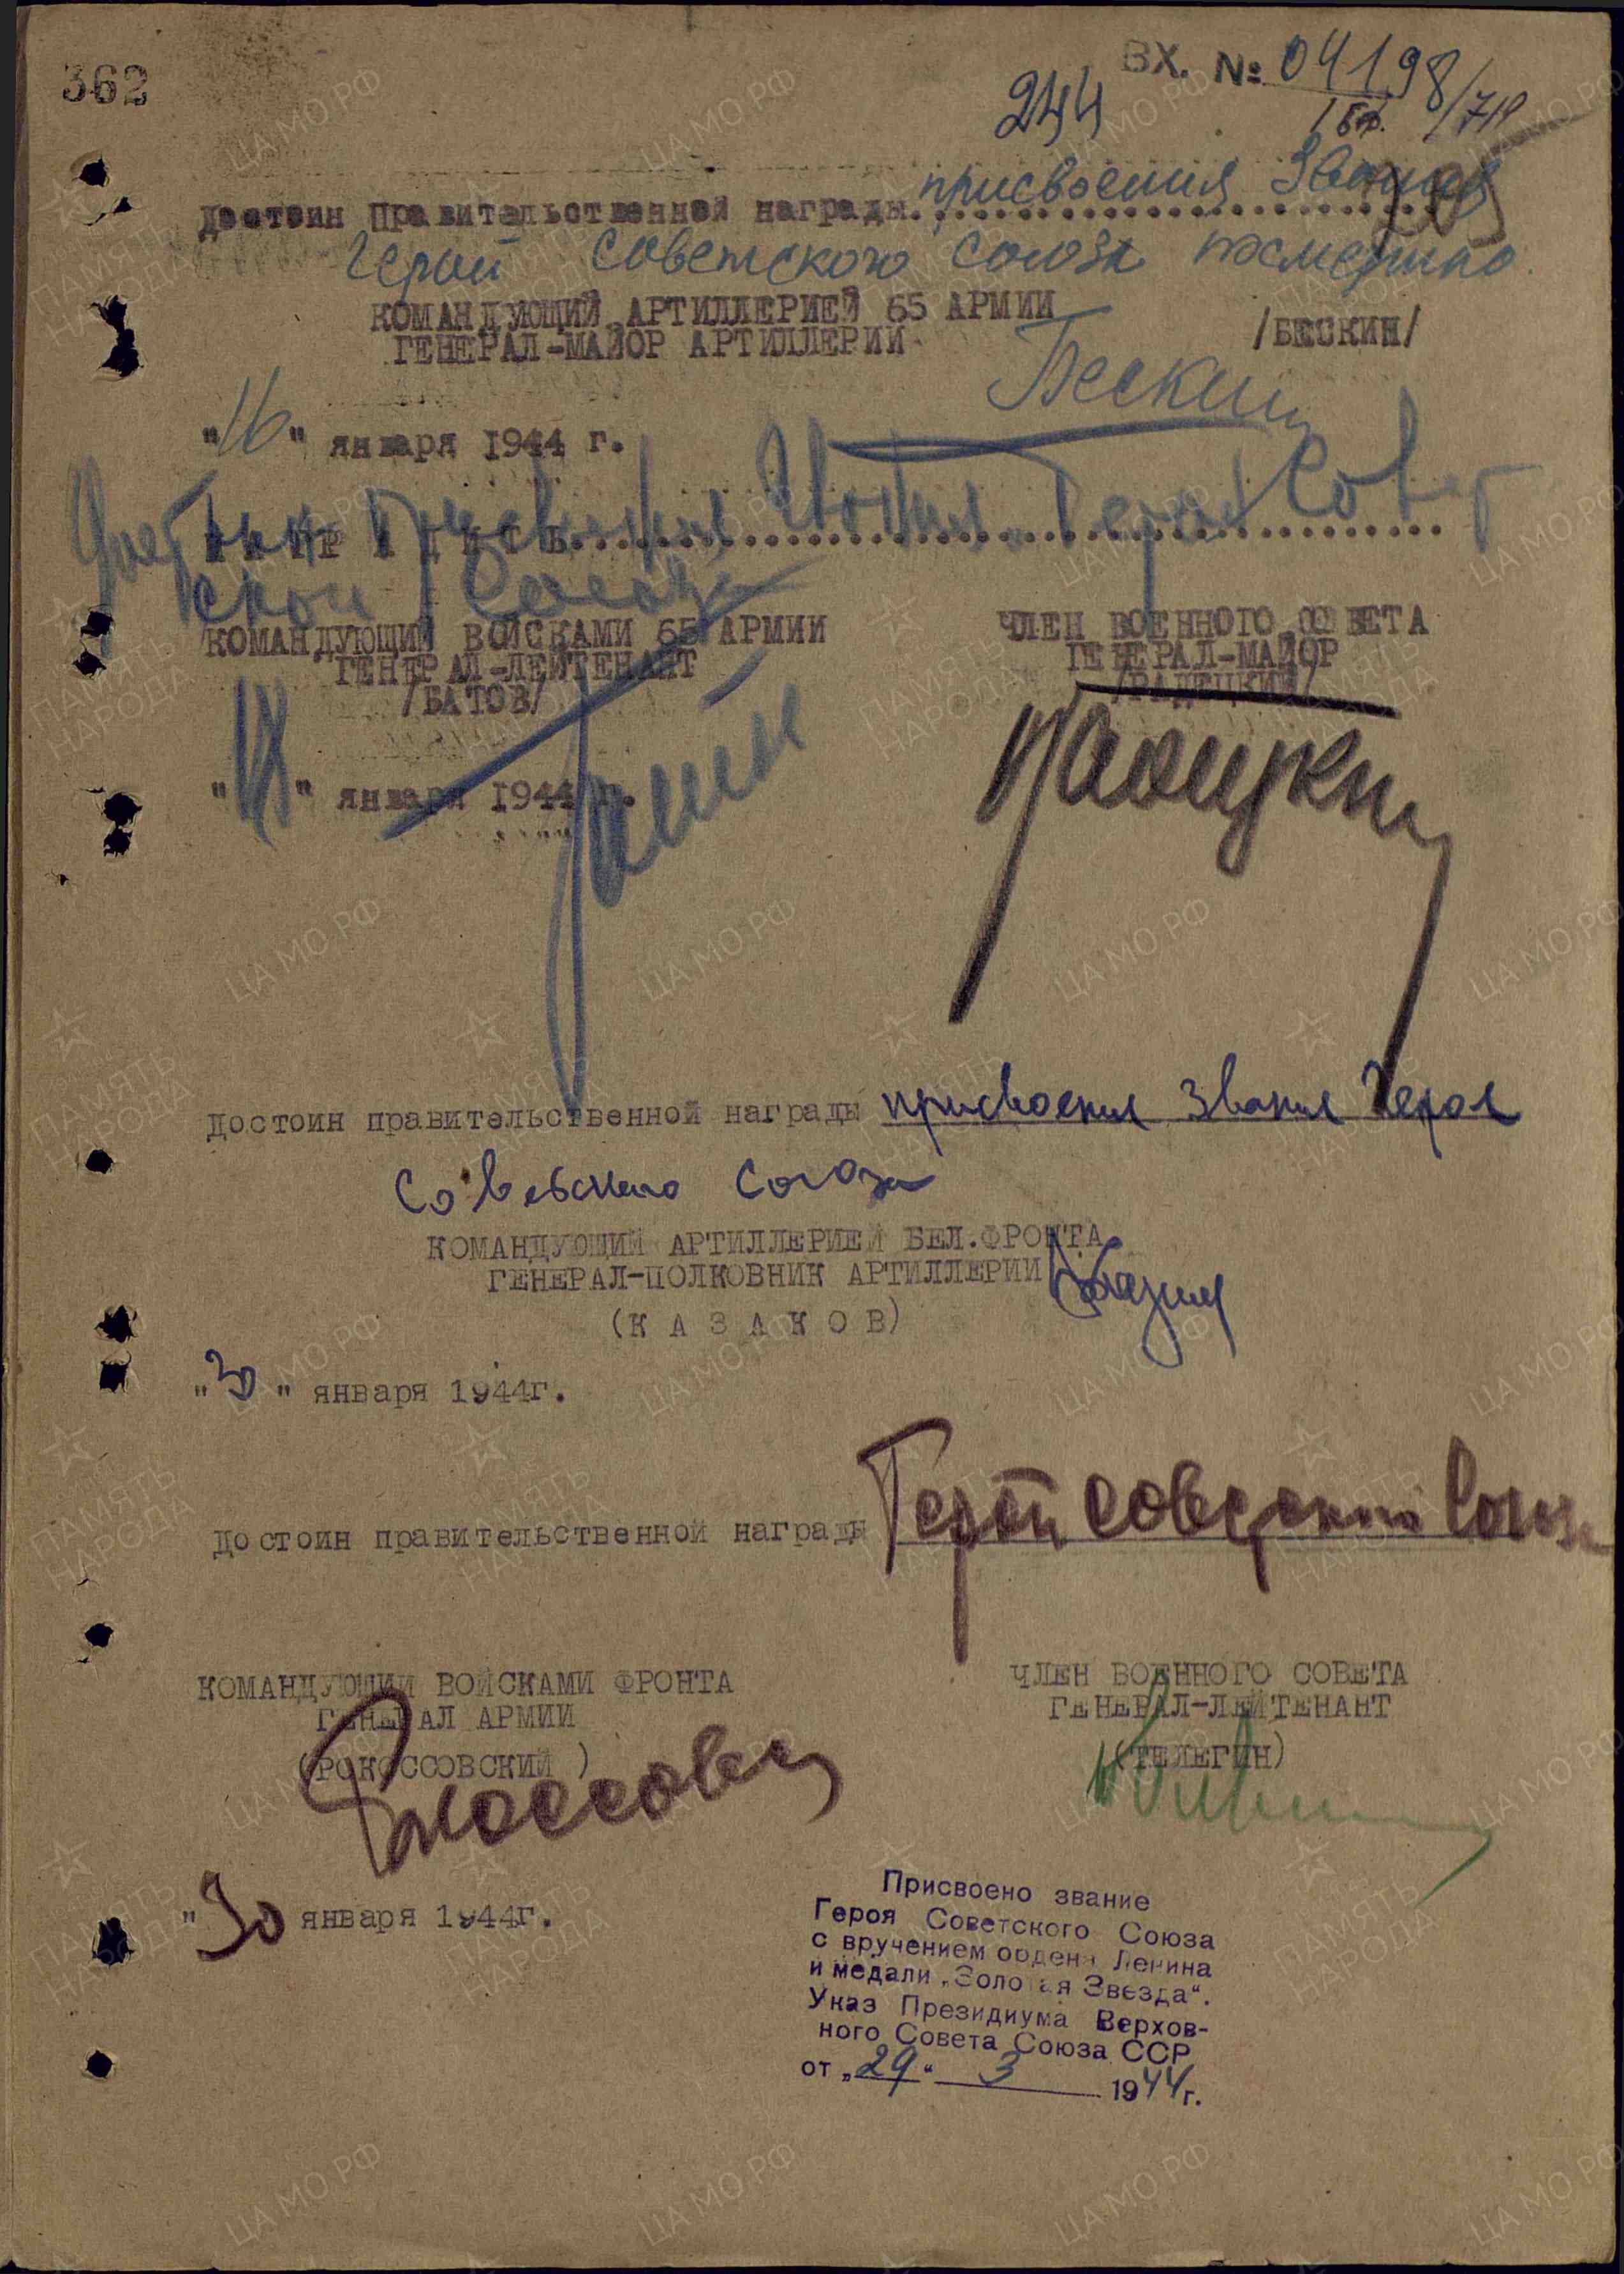 362
ВХ. № 04198/
244
Достоин Правительственной награды присвоения Звания
Герой Советского Союза посмертно.
КОМАНДУЮЩИЙ АРТИЛЛЕРИЕЙ 65 АРМИИ
ГЕНЕРАЛ-МАЙОР АРТИЛЛЕРИИ
/БЕСКИН/
Бескин
"16" января 1944 г.
Достоин Присвоения Звания Героя Совет
ского Союза
КОМАНДУЮЩИЙ ВОЙСКАМИ 65 АРМИИ
ГЕНЕРАЛ-ЛЕЙТЕНАНТ
/БАТОВ/
ЧЛЕН ВОЕННОГО СОВЕТА
ГЕНЕРАЛ-МАЙОР
/РАДЕЦКИЙ/
" " января 1944 г.
Достоин правительственной награды присвоения звания Героя
Советского Союза
КОМАНДУЮЩИЙ АРТИЛЛЕРИЕЙ БЕЛ.ФРОНТА
ГЕНЕРАЛ-ПОЛКОВНИК АРТИЛЛЕРИИ
(К А З А К О В)
"30" января 1944г.
Достоин правительственной награды Герой Советский Союза
КОМАНДУЮЩИЙ ВОЙСКАМИ ФРОНТА
ГЕНЕРАЛ АРМИИ
(РОКОССОВСКИЙ )
ЧЛЕН ВОЕННОГО СОВЕТА
ГЕНЕРАЛ-ЛЕЙТЕНАНТ
(ТЕЛЕГИН)
"30 января 1944г.
Присвоено звание
Героя Советского Союза
с вручением ордена Ленина
и медали „Золотая Звезда".
Указ Президиума Верхов-
ного Совета Союза ССР
от „29" 3 1944г.